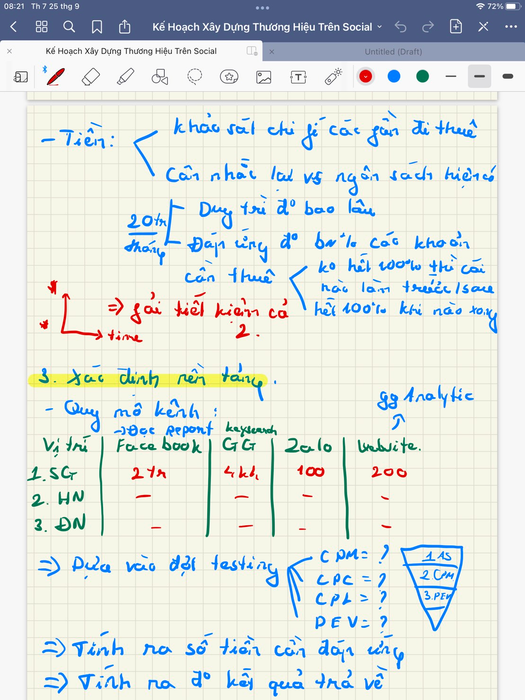 08:21 Th 7 25 thg 9
72%
Kế Hoạch Xây Dựng Thương Hiệu Trên Social
Kế Hoạch Xây Dựng Thương Hiệu Trên Social
Untitled (Draft)
- Tiền:
khảo sát chi fí các fần đi thuê
Cân nhắc lại vs ngân sách hiện có
20tr
tháng
Duy trì đc bao lâu
Đáp ứng đc bn% các khoản
cần thuê
ko hết 100% thì cái
nào làm trước/sau
hết 100% khi nào xong
time
=> fải tiết kiệm cả
2.
3. Xác định nền tảng.
- Quy mô kênh:
gg Analytic
→ Đọc Report
keysearch
Vị trí Facebook GG Zalo Website.
1. SG 2 tr 4 kh. 100 200
2. HN – – – –
3. ĐN – – – –
=> Dựa vào đợt testing
CPM = ?
CPC = ?
CPL = ?
REV = ?
1. 1S
2 CPM
3. REV
=> Tính ra số tiền cần đáp ứng
=> Tính ra đc kết quả trả về